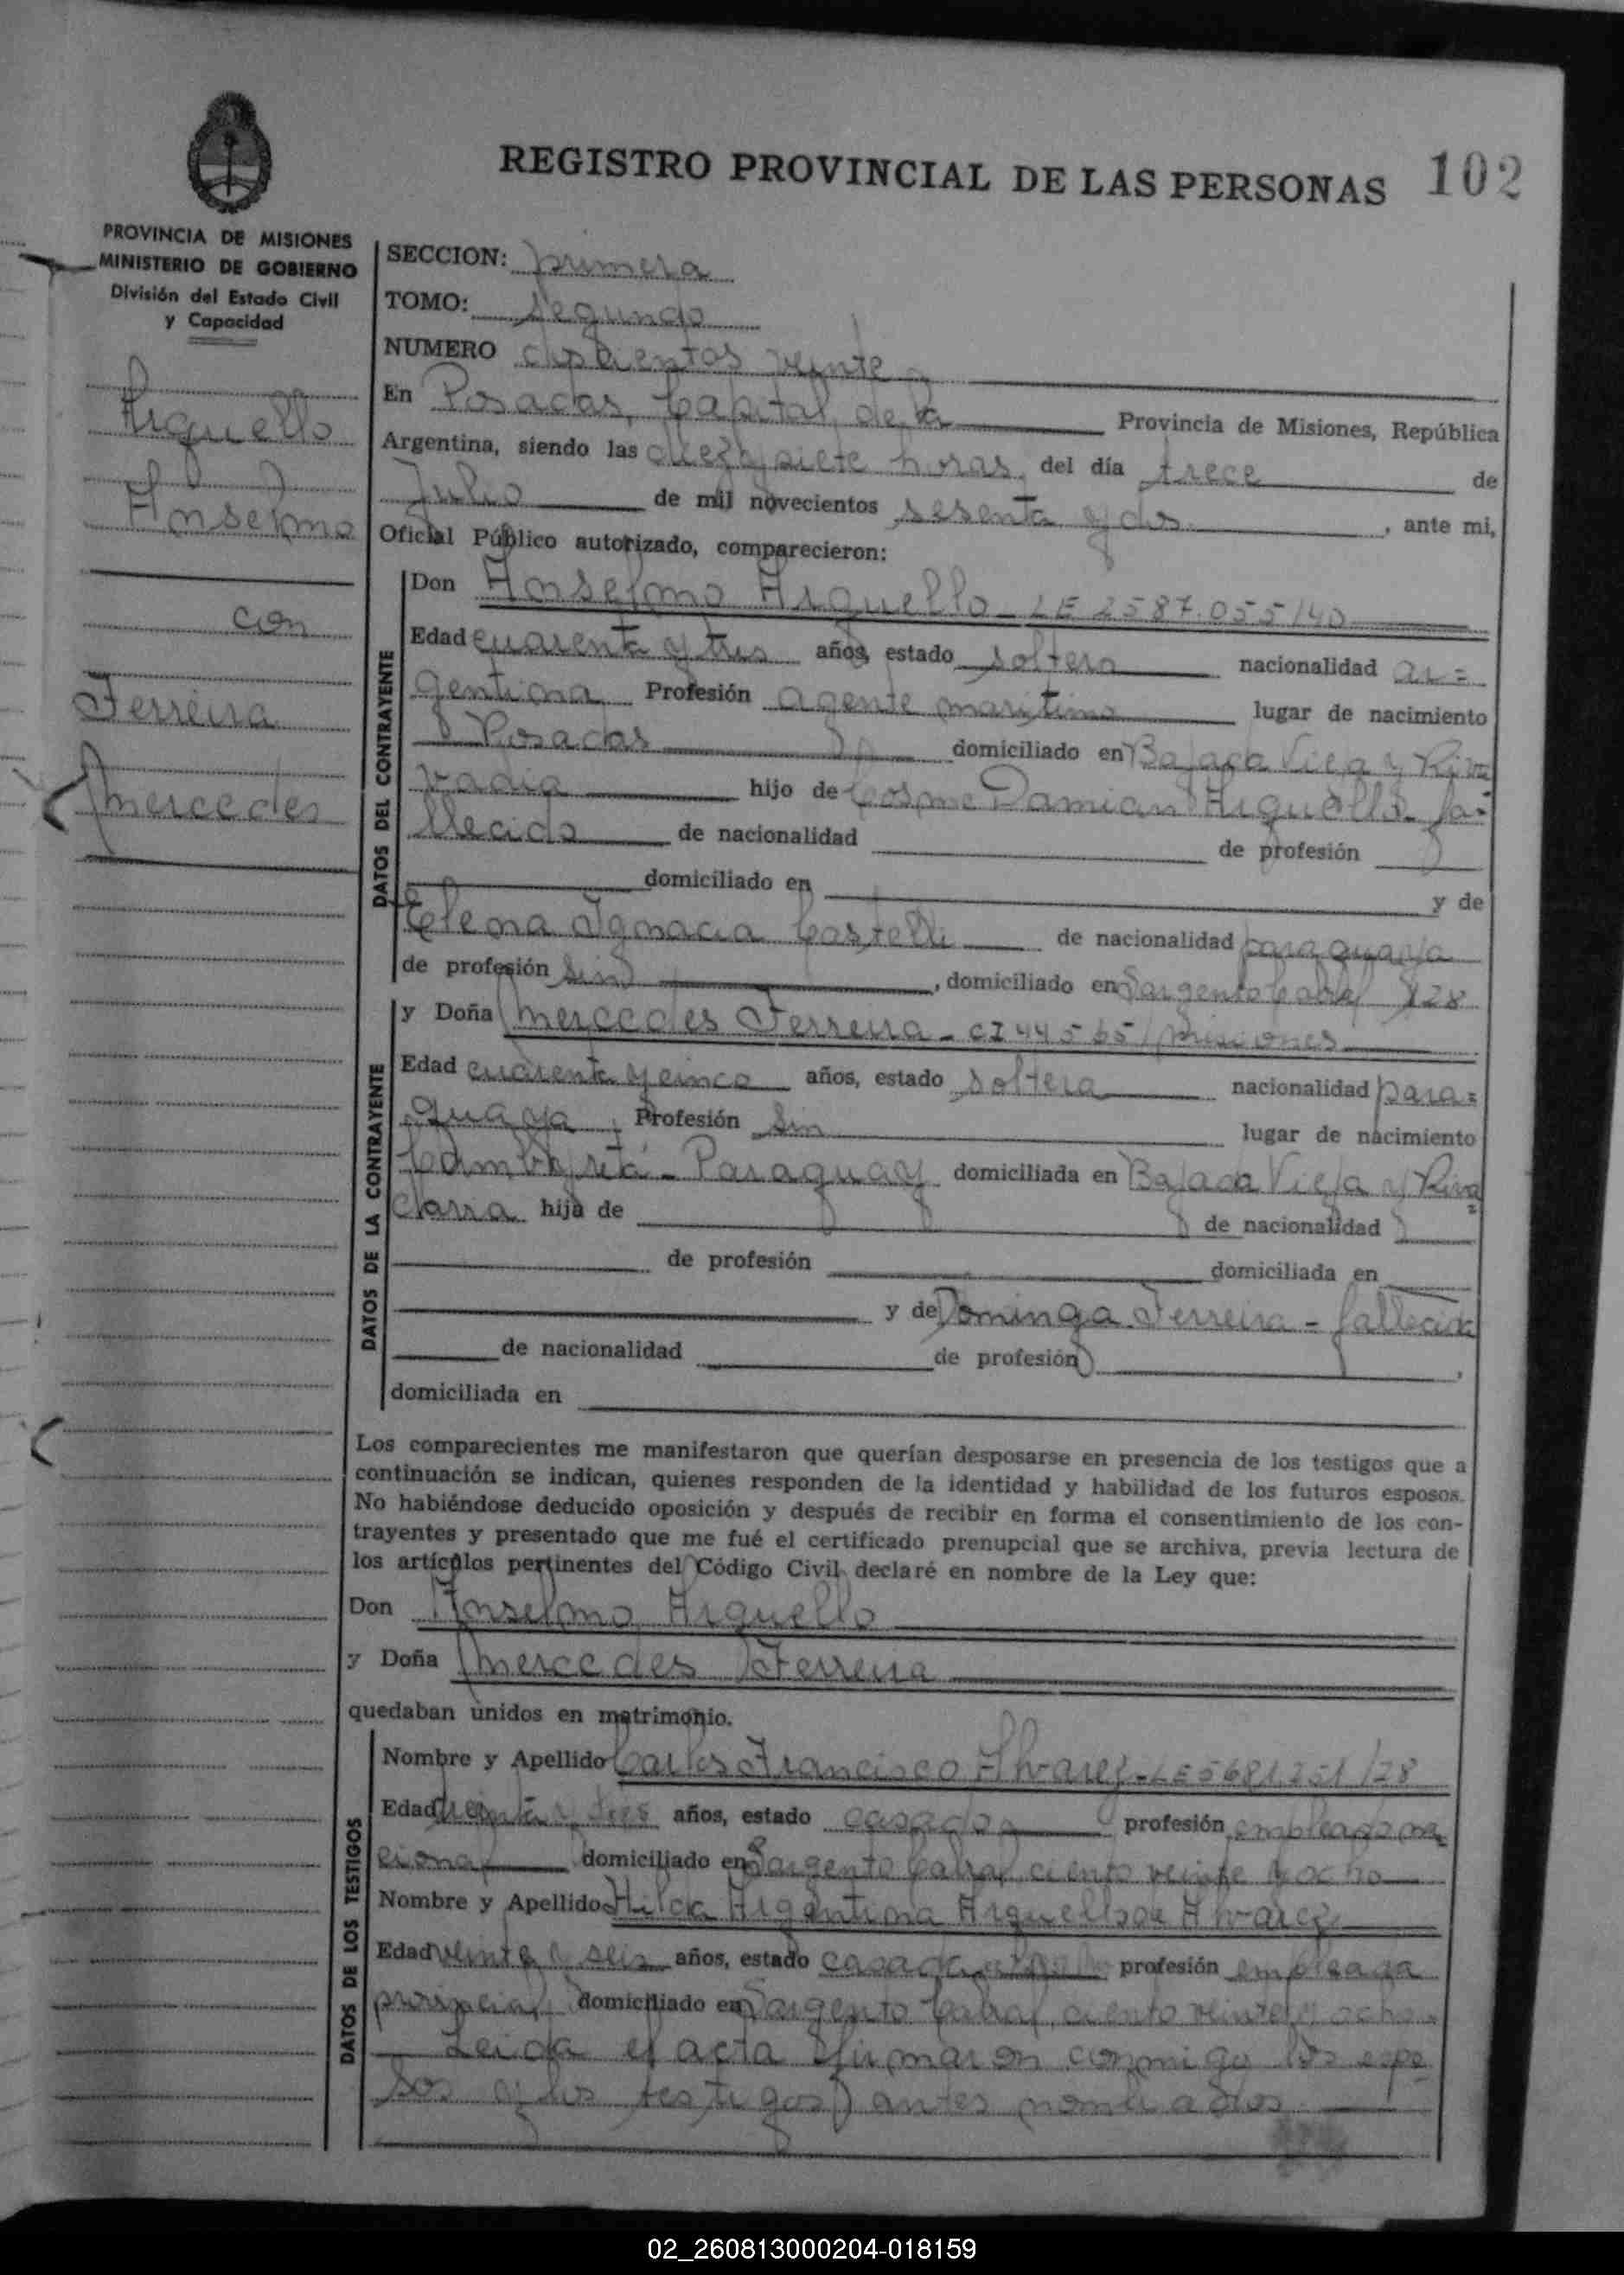 REGISTRO PROVINCIAL DE LAS PERSONAS 102
PROVINCIA DE MISIONES
MINISTERIO DE GOBIERNO
División del Estado Civil
y Capacidad
Arguello
Anselmo
con
Ferreira
Mercedes
SECCION: primera
TOMO: segundo
NUMERO doscientos veinte
En Posadas, Capital de la Provincia de Misiones, República
Argentina, siendo las diez y siete horas, del día trece de
Julio de mil novecientos sesenta y dos , ante mi,
Oficial Público autorizado, comparecieron:
DATOS DEL CONTRAYENTE
Don Anselmo Arguello - LE 2587.055/40
Edad cuarenta y tres años, estado soltero nacionalidad ar=
gentina Profesión agente marítimo lugar de nacimiento
Posadas domiciliado en Bajada Vieja y Riva
davia hijo de Cosme Damian Arguello - fa-
llecido de nacionalidad de profesión
domiciliado en y de
Elena Ignacia Costelli de nacionalidad paraguaya
de profesión sin , domiciliado en Sargento Cabral 128
DATOS DE LA CONTRAYENTE
y Doña Mercedes Ferreira - CI 44565/Misiones
Edad cuarenta y cinco años, estado soltera nacionalidad para=
guaya, Profesión sin lugar de nacimiento
Cambyretá - Paraguay domiciliada en Bajada Vieja y Riva
davia hija de de nacionalidad
de profesión domiciliada en
y de Dominga Ferreira - fallecida
de nacionalidad de profesión ,
domiciliada en
Los comparecientes me manifestaron que querían desposarse en presencia de los testigos que a
continuación se indican, quienes responden de la identidad y habilidad de los futuros esposos.
No habiéndose deducido oposición y después de recibir en forma el consentimiento de los con-
trayentes y presentado que me fué el certificado prenupcial que se archiva, previa lectura de
los artículos pertinentes del Código Civil declaré en nombre de la Ley que:
Don Anselmo Arguello
y Doña Mercedes Ferreira
quedaban unidos en matrimonio.
DATOS DE LOS TESTIGOS
Nombre y Apellido Carlos Francisco Alvarez - LE 5681.251/28
Edad treinta y tres años, estado casado profesión empleado na=
cional domiciliado en Sargento Cabral ciento veinte y ocho
Nombre y Apellido Hilda Argentina Arguello de Alvarez
Edad veinte y seis años, estado casada profesión empleada
provincial domiciliado en Sargento Cabral, ciento veinte y ocho.
Leida el acta firmaron conmigo los espo
sos y los testigos antes nombrados
02_260813000204-018159